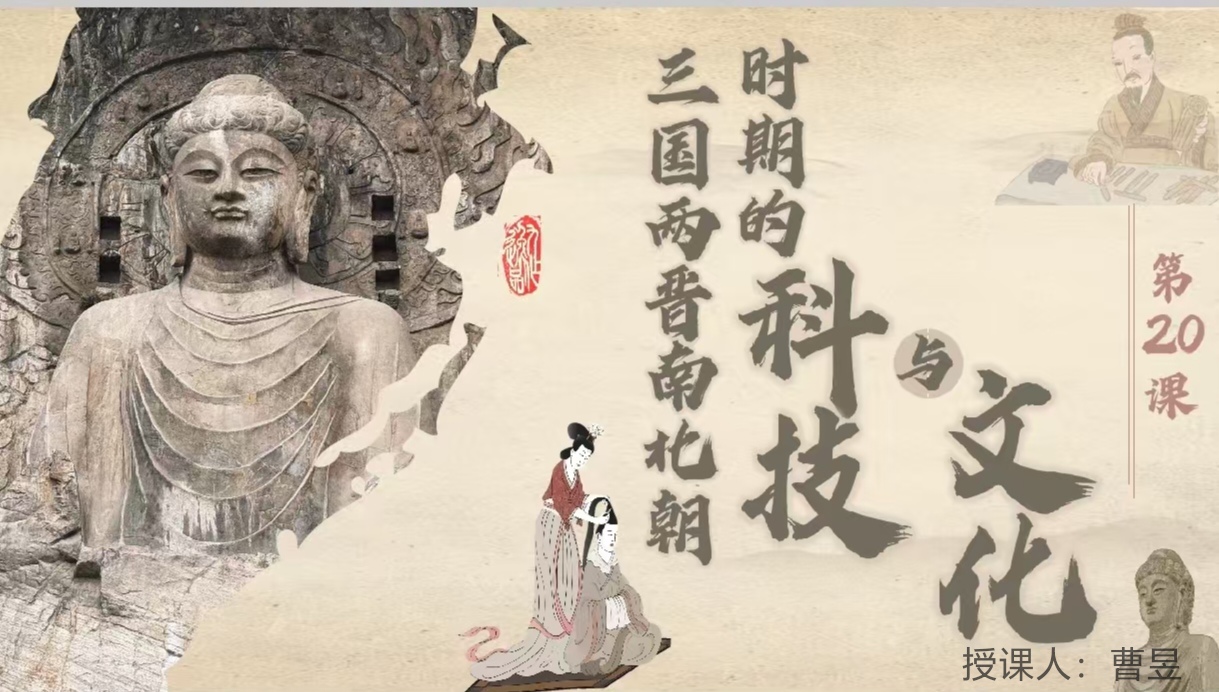 第20课
三国两晋南北朝
时期的科技
与
文化
授课人：曹昱